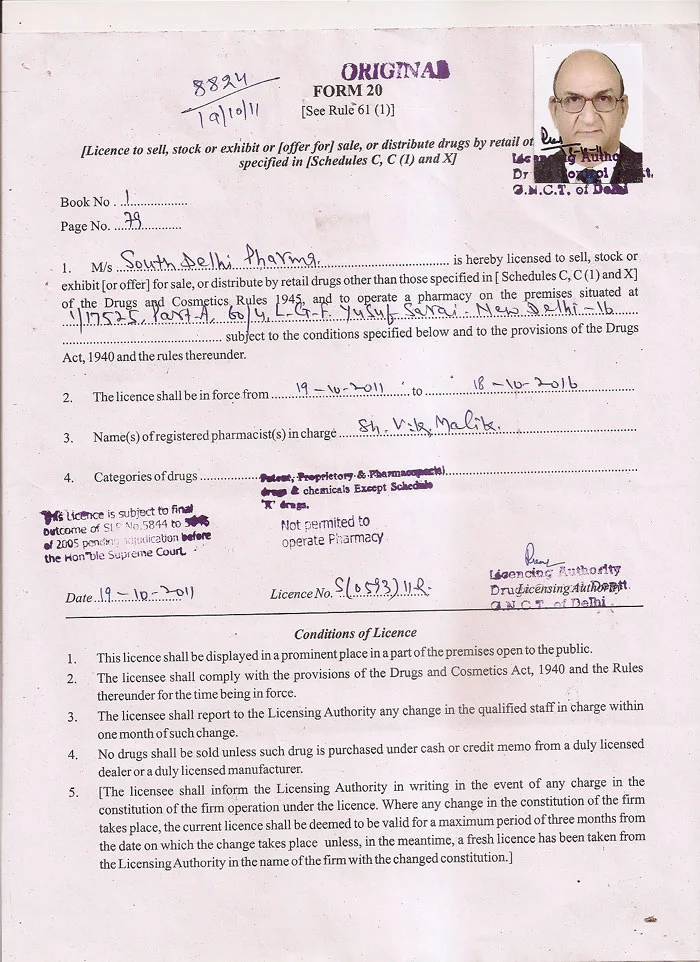 8824
19/10/11
ORIGINAL
FORM 20
[See Rule 61 (1)]
[Licence to sell, stock or exhibit or [offer for] sale, or distribute drugs by retail ot
specified in [Schedules C, C (1) and X]
Licencing Autho
G.N.C.T. of Delhi
Book No . 1
Page No. 79
1. M/s South Delhi Pharma is hereby licensed to sell, stock or
exhibit [or offer] for sale, or distribute by retail drugs other than those specified in [ Schedules C, C (1) and X]
of the Drugs and Cosmetics Rules 1945, and to operate a pharmacy on the premises situated at
1/17525, Part-A, 60/4, L-G-F. Yusuf Sarai - New Delhi-16
subject to the conditions specified below and to the provisions of the Drugs
Act, 1940 and the rules thereunder.
2. The licence shall be in force from 19-10-2011 to 18-10-2016
3. Name(s) of registered pharmacist(s) in charge Sh. V.K. Malik.
4. Categories of drugs
Patent, Proprietory & Pharmacopoeial
drugs & chemicals Except Schedule
'X' drugs.
This Licence is subject to final
outcome of SLP No.5844 to
of 2005 pending adjudication before
the Hon'ble Supreme Court.
Not permitted to
operate Pharmacy
Licencing Authority
Drug Deptt.
Licensing Authority
G.N.C.T. of Delhi
Date 19-10-2011
Licence No. S(0593)
Conditions of Licence
1. This licence shall be displayed in a prominent place in a part of the premises open to the public.
2. The licensee shall comply with the provisions of the Drugs and Cosmetics Act, 1940 and the Rules
thereunder for the time being in force.
3. The licensee shall report to the Licensing Authority any change in the qualified staff in charge within
one month of such change.
4. No drugs shall be sold unless such drug is purchased under cash or credit memo from a duly licensed
dealer or a duly licensed manufacturer.
5. [The licensee shall inform the Licensing Authority in writing in the event of any charge in the
constitution of the firm operation under the licence. Where any change in the constitution of the firm
takes place, the current licence shall be deemed to be valid for a maximum period of three months from
the date on which the change takes place unless, in the meantime, a fresh licence has been taken from
the Licensing Authority in the name of the firm with the changed constitution.]